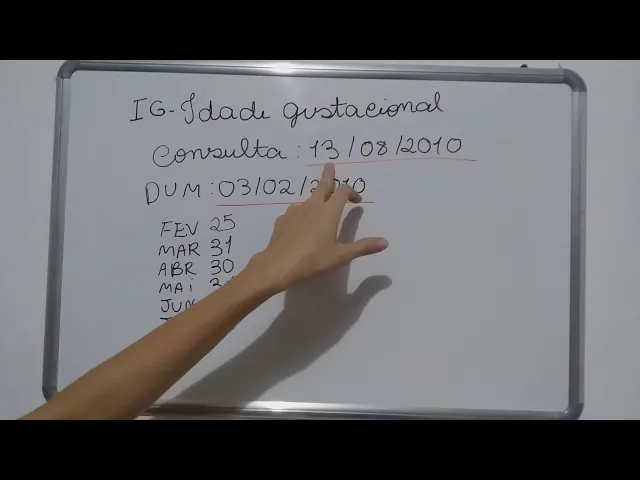 IG-Idade gestacional
Consulta: 13/08/2010
DUM: 03/02/2010
FEV 25
MAR 31
ABR 30
MAI
JUN